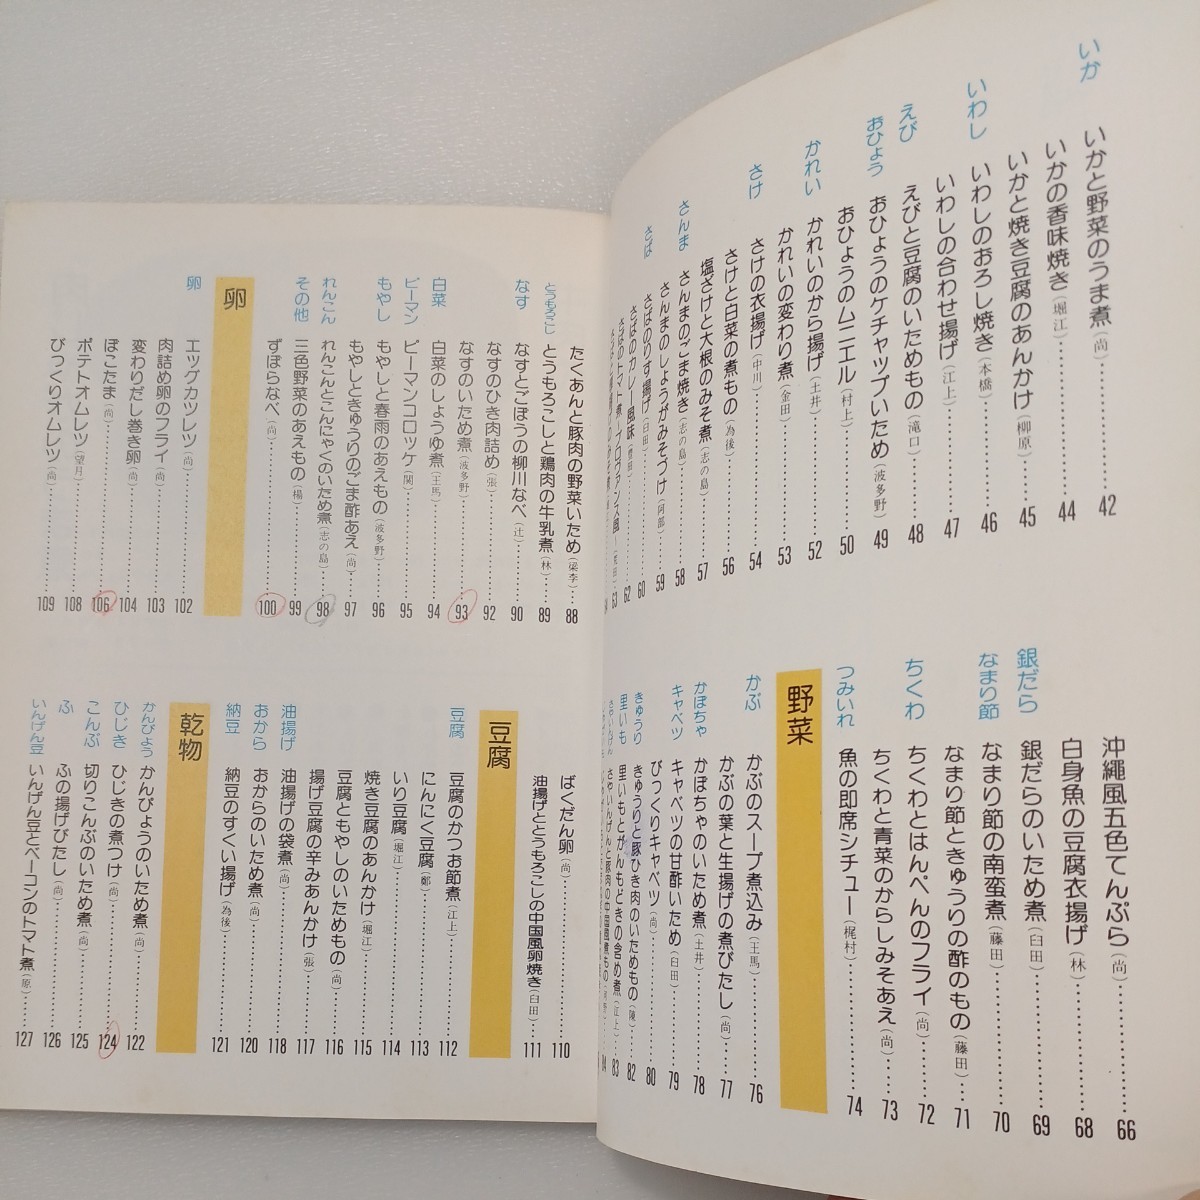 いか
いかと野菜のうま煮(尚)…42
いかの香味焼き(堀江)…44
いかと焼き豆腐のあんかけ(柳原)…45
いわし
いわしのおろし焼き(本橋)…46
いわしの合わせ揚げ(江上)…47
えび
えびと豆腐のいためもの(滝口)…48
おひょう
おひょうのケチャップいため(波多野)…49
おひょうのムニエル(村上)…50
かれい
かれいのから揚げ(土井)…52
かれいの変わり煮(金田)…53
さけ
さけの衣揚げ(中川)…54
さけと白菜の煮もの(為後)…56
塩ざけと大根のみそ煮(志の島)…57
さんま
さんまのごま焼き(志の島)…58
さんまのしょうがみそづけ(阿部)…59
さば
さばのりす揚げ(臼田)…60
さばのカレー風味(豊田)…62
さばのトマト煮・プロヴァンス風…63
沖縄風五色てんぷら(尚)…66
白身魚の豆腐衣揚げ(林)…68
銀だら
銀だらのいため煮(臼田)…69
なまり節
なまり節の南蛮煮(藤田)…70
なまり節ときゅうりの酢のもの(藤田)…71
ちくわ
ちくわとはんぺんのフライ(尚)…72
ちくわと青菜のからしみそあえ(尚)…73
つみいれ
魚の即席シチュー(梶村)…74
野菜
かぶ
かぶのスープ煮込み(王馬)…76
かぶの葉と生揚げの煮びたし(尚)…77
かぼちゃ
かぼちゃのいため煮(土井)…78
キャベツ
キャベツの甘酢いため(臼田)…79
びっくりキャベツ(尚)…80
きゅうり
きゅうりと豚ひき肉のいためもの(陳)…82
里いも
里いもとがんもどきの含め煮(江上)…83
さやいんげん
さやいんげんと豚肉の中国風煮もの…84
たくあんと豚肉の野菜いため(梁李)…88
とうもろこし
とうもろこしと鶏肉の牛乳煮(林)…89
なす
なすとごぼうの柳川なべ(辻)…90
なすのひき肉詰め(張)…92
なすのいため煮(波多野)…93
白菜
白菜のしょうゆ煮(王馬)…94
ピーマン
ピーマンコロッケ(関)…95
もやし
もやしと春雨のあえもの(波多野)…96
もやしときゅうりのごま酢あえ(尚)…97
れんこん
れんこんとこんにゃくのいため煮(志の島)…98
その他
三色野菜のあえもの(楊)…99
ずぼらなべ(尚)…100
卵
卵
エッグカツレツ(尚)…102
肉詰め卵のフライ(尚)…103
変わりだし巻き卵(尚)…104
ぽこたま(尚)…106
ポテトオムレツ(望月)…108
びっくりオムレツ(尚)…109
ばくだん卵(尚)…110
油揚げととうもろこしの中国風卵焼き(臼田)…111
豆腐
豆腐
豆腐のかつお節煮(江上)…112
にんにく豆腐(鄭)…113
いり豆腐(堀江)…114
焼き豆腐のあんかけ(堀江)…115
豆腐ともやしのいためもの(尚)…116
揚げ豆腐の辛みあんかけ(張)…117
油揚げ
油揚げの袋煮(尚)…118
おから
おからのいため煮(尚)…120
納豆
納豆のすくい揚げ(為後)…121
乾物
かんぴょう
かんぴょうのいため煮(尚)…122
ひじき
ひじきの煮つけ(尚)…124
こんぶ
切りこんぶのいため煮(尚)…125
ふ
ふの揚げびたし(尚)…126
いんげん豆
いんげん豆とベーコンのトマト煮(原)…127